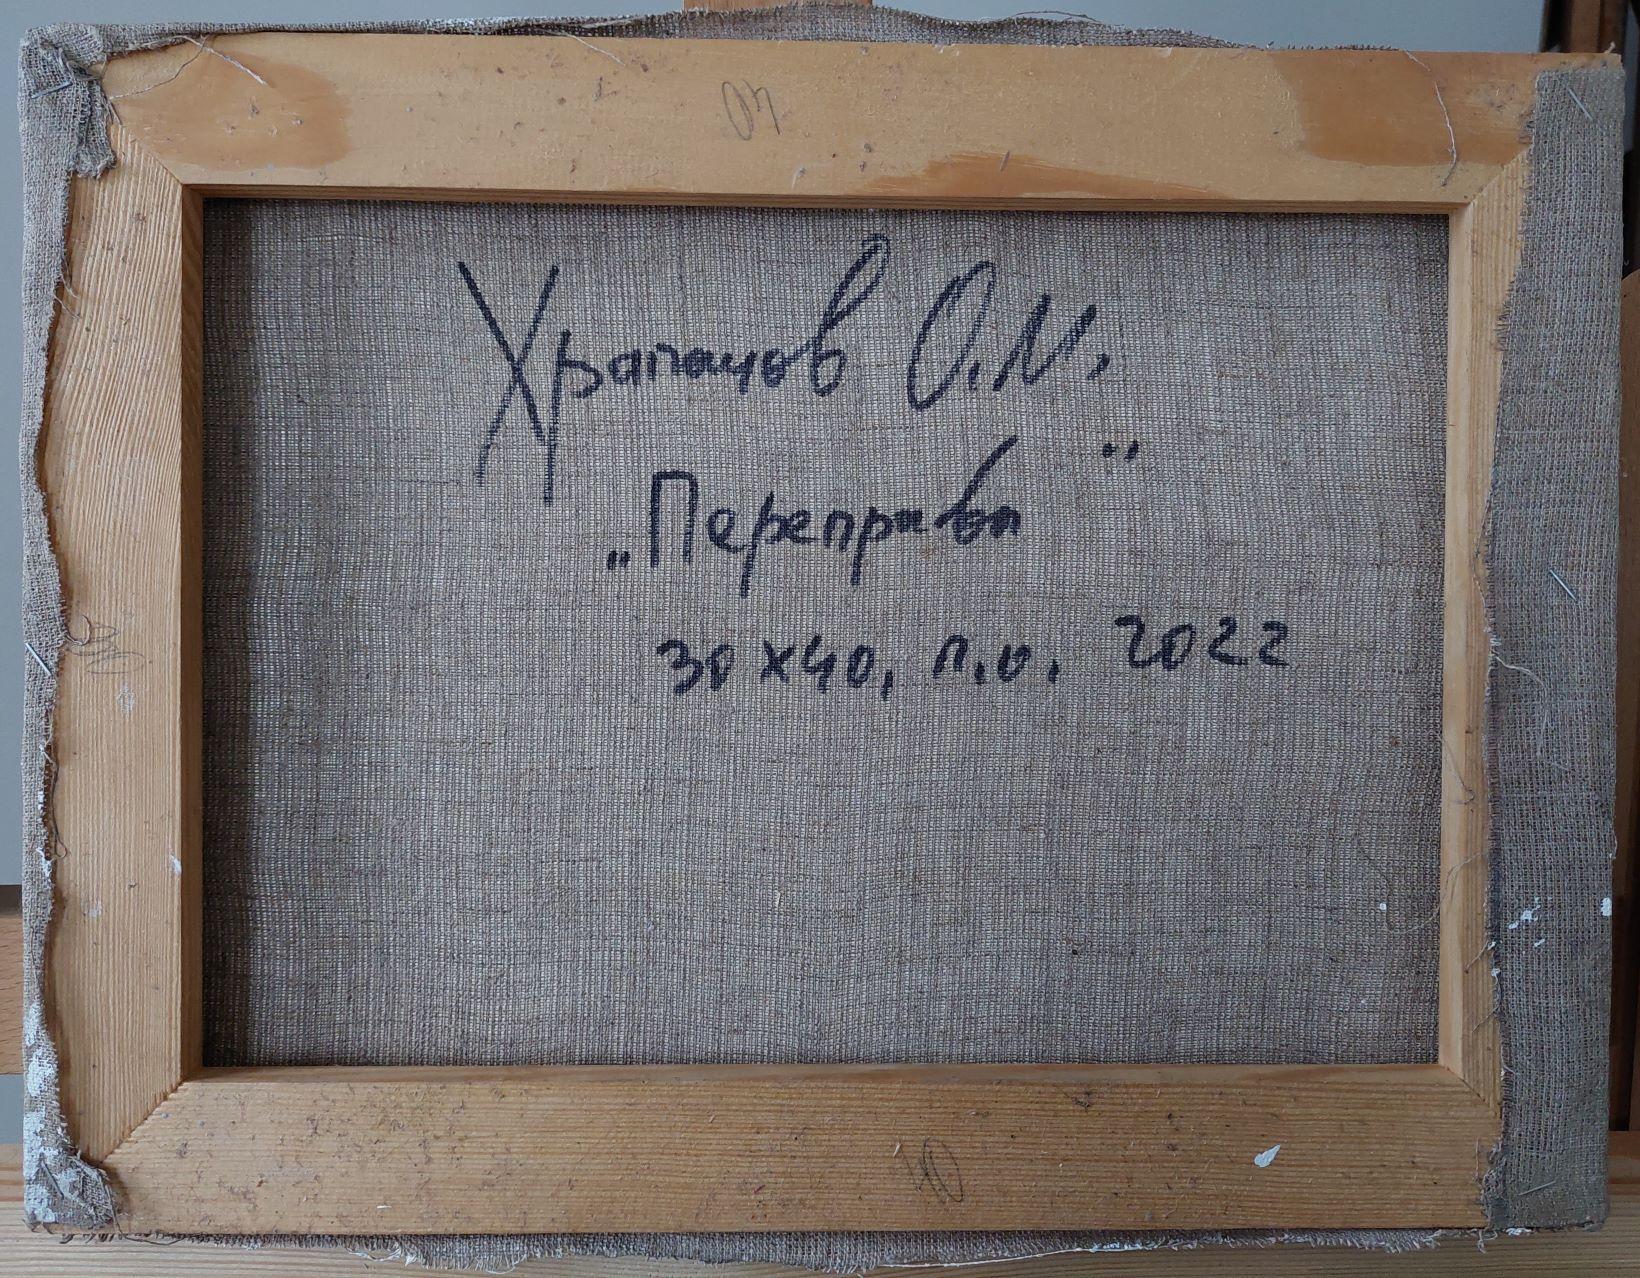 40
Храпачов О.М.
„Переправа"
30х40, п.о. 2022
40